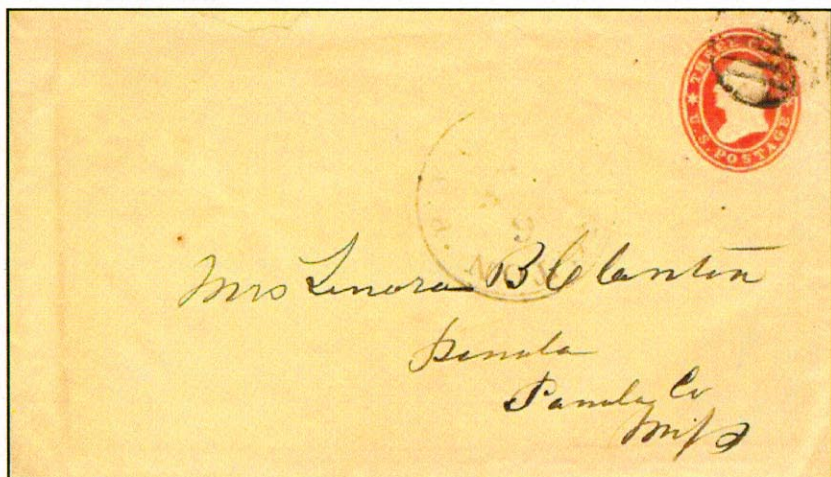 THREE
U.S. POSTAGE
10
Mrs Lenora B Clanton
Panola
Panola Co
Miss